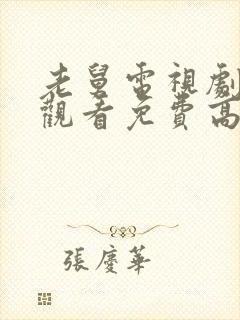 老舅電視劇
觀看免費高
張慶華